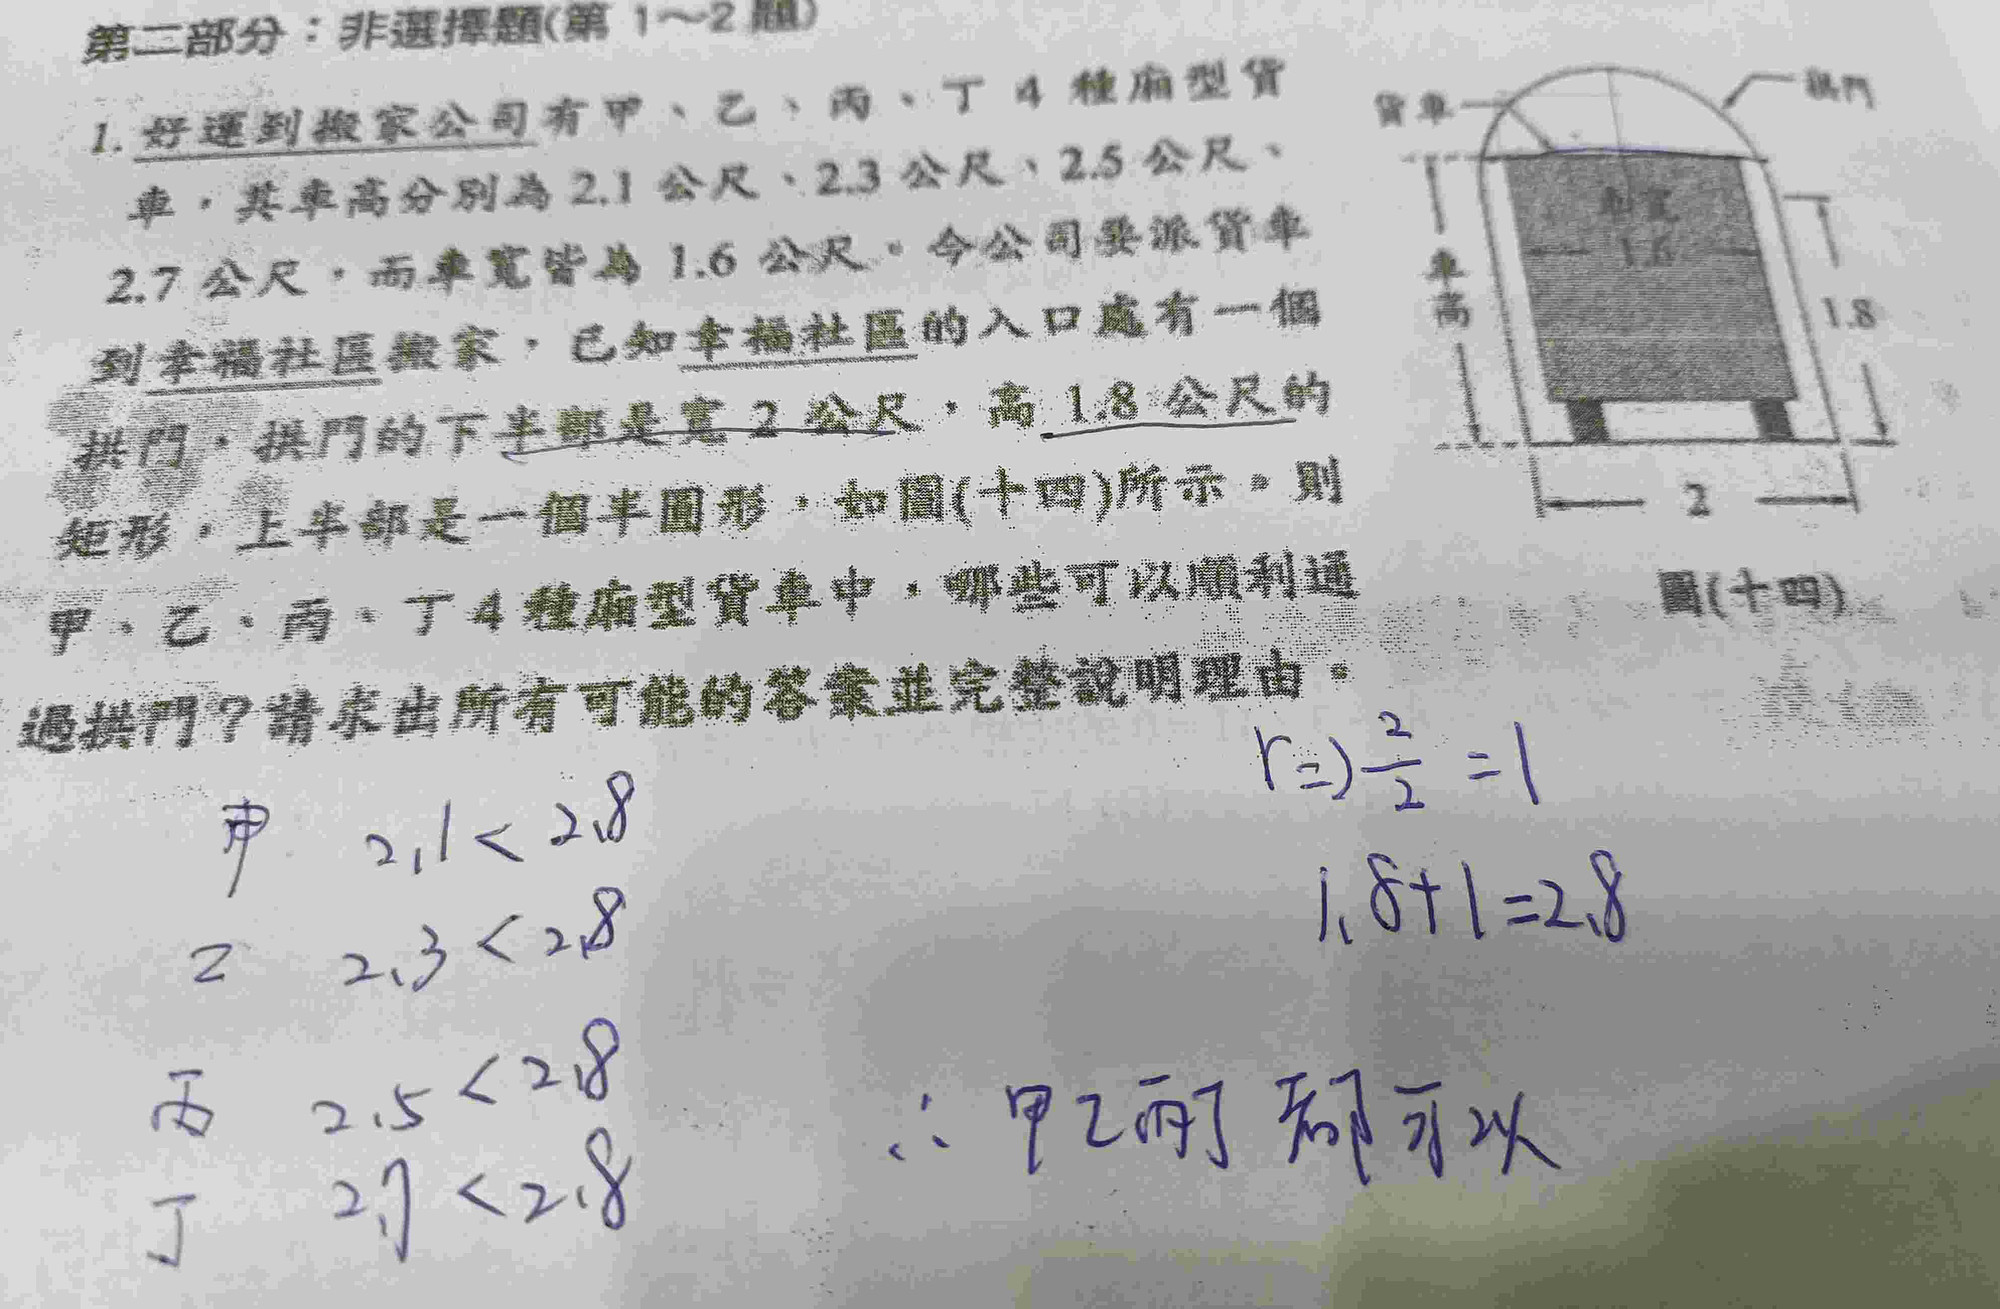 第二部分：非選擇題(第 1～2 題)
1. 好運到搬家公司有甲、乙、丙、丁 4 種廂型貨
車，其車高分別為 2.1 公尺、2.3 公尺、2.5 公尺、
2.7 公尺，而車寬皆為 1.6 公尺。今公司要派貨車
到幸福社區搬家，已知幸福社區的入口處有一個
拱門，拱門的下半部是寬 2 公尺，高 1.8 公尺的
矩形，上半部是一個半圓形，如圖(十四)所示。則
甲、乙、丙、丁 4 種廂型貨車中，哪些可以順利通
過拱門？請求出所有可能的答案並完整說明理由。
貨車
拱門
車寬
1.6
車高
1.8
2
圖(十四)
r⇒ 2/2 = 1
1.8+1=2.8
甲 2.1 < 2.8
乙 2.3 < 2.8
丙 2.5 < 2.8
丁 2.7 < 2.8
∴ 甲乙丙丁 都可以